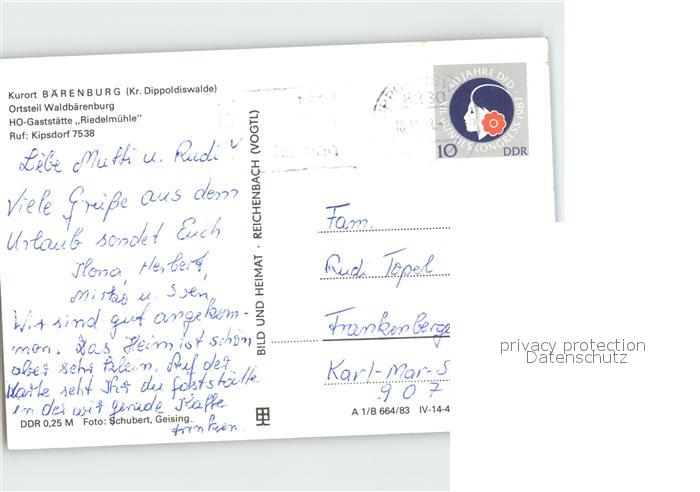 Kurort BÄRENBURG (Kr. Dippoldiswalde)
Ortsteil Waldbärenburg
HO-Gaststätte „Riedelmühle"
Ruf: Kipsdorf 7538
Liebe Mutti u. Rudi!
Viele Grüße aus dem
Urlaub sendet Euch
Ilona, Herbert,
Mirko u. Sven.
Wir sind gut angekom-
men. Das Heim ist schön
aber sehr klein. Auf der
Karte seht Ihr die Gaststätte
in der wir gerade Kaffe
trinken.
DDR 0,25 M Foto: Schubert, Geising
BILD UND HEIMAT · REICHENBACH (VOGTL)
8230
40 JAHRE DFD
BUNDESKONGRESS 1987
10 DDR
Fam.
Rudi Topel
Frankenberge
Karl-Mar-S
907
A 1/B 664/83 IV-14-4
privacy protection
Datenschutz